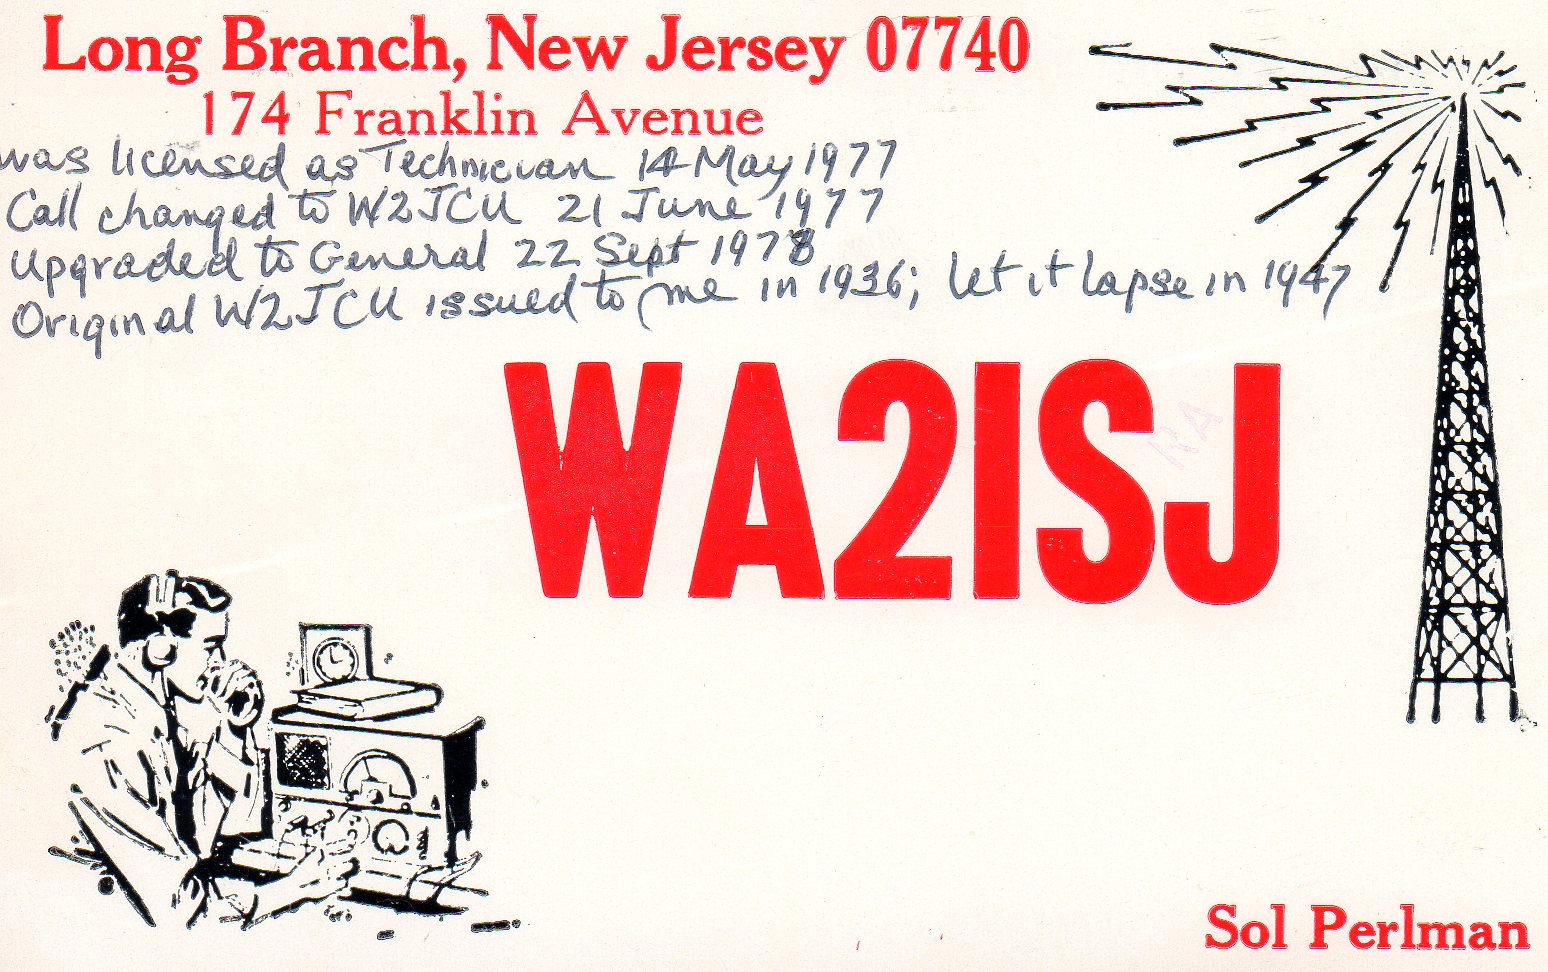 Long Branch, New Jersey 07740
174 Franklin Avenue
was licensed as Technician 14 May 1977
Call changed to W2JCU 21 June 1977
Upgraded to General 22 Sept 1978
Original W2JCU issued to me in 1936; let it lapse in 1947
WA2ISJ
RA
Sol Perlman